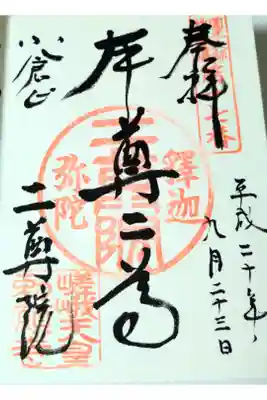 奉拝
平成二十年
九月二十三日
本尊二尊
釋迦
弥陀
小倉山
二尊院
嵯峨天皇